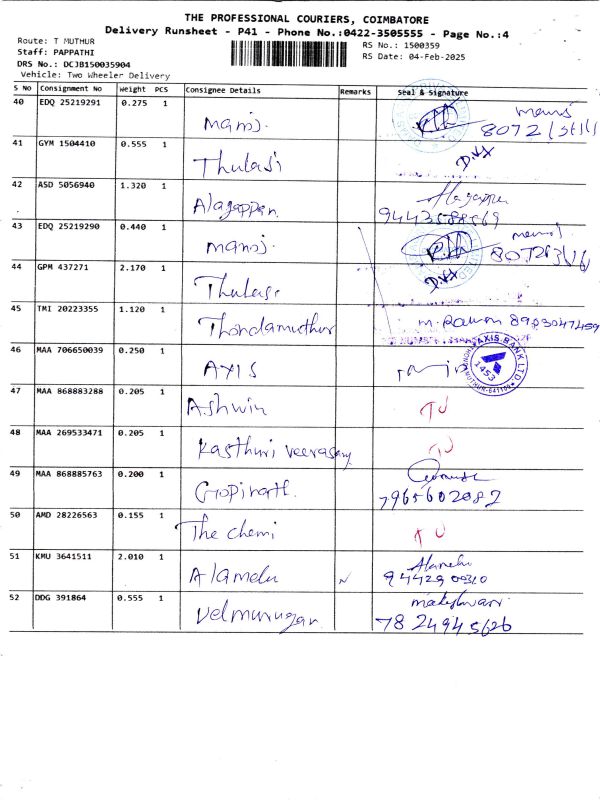 THE PROFESSIONAL COURIERS, COIMBATORE
Delivery Runsheet - P41 - Phone No.:0422-3505555 - Page No.:4
Route: T MUTHUR
Staff: PAPPATHI
DRS No.: DCJB150035904
Vehicle: Two Wheeler Delivery
RS No.: 1500359
RS Date: 04-Feb-2025
S No Consignment No Weight PCS Consignee Details Remarks Seal & Signature
40 EDQ 25219291 0.275 1 Manoj.
41 GYM 1504410 0.555 1 Thulasi
42 ASD 5056940 1.320 1 Alagappan Alagappa
9443588569
43 EDQ 25219290 0.440 1 Manoj.
44 GPM 437271 2.170 1 Thulasi
45 TMI 20223355 1.120 1 Thondamuthur M. Raman 8983047459
46 MAA 706650039 0.250 1 AXIS
AXIS BANK LTD
1453
47 MAA 868883288 0.205 1 Ashwin TU
48 MAA 269533471 0.205 1 Kasthuri veerasamy TU
49 MAA 868885763 0.200 1 Gopinath
7965602082
50 AMD 28226563 0.155 1 The chemi TU
51 KMU 3641511 2.010 1 Alamelu Alamelu
9442900310
52 DDG 391864 0.555 1 Velmurugan Maheshwari
78 24945626